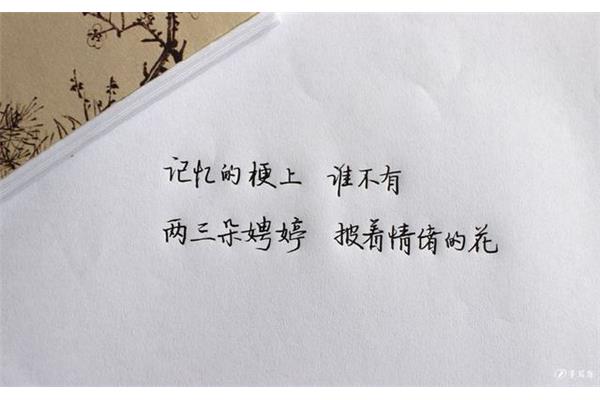 记忆的梗上 谁不有
两三朵娉婷 披着情绪的花